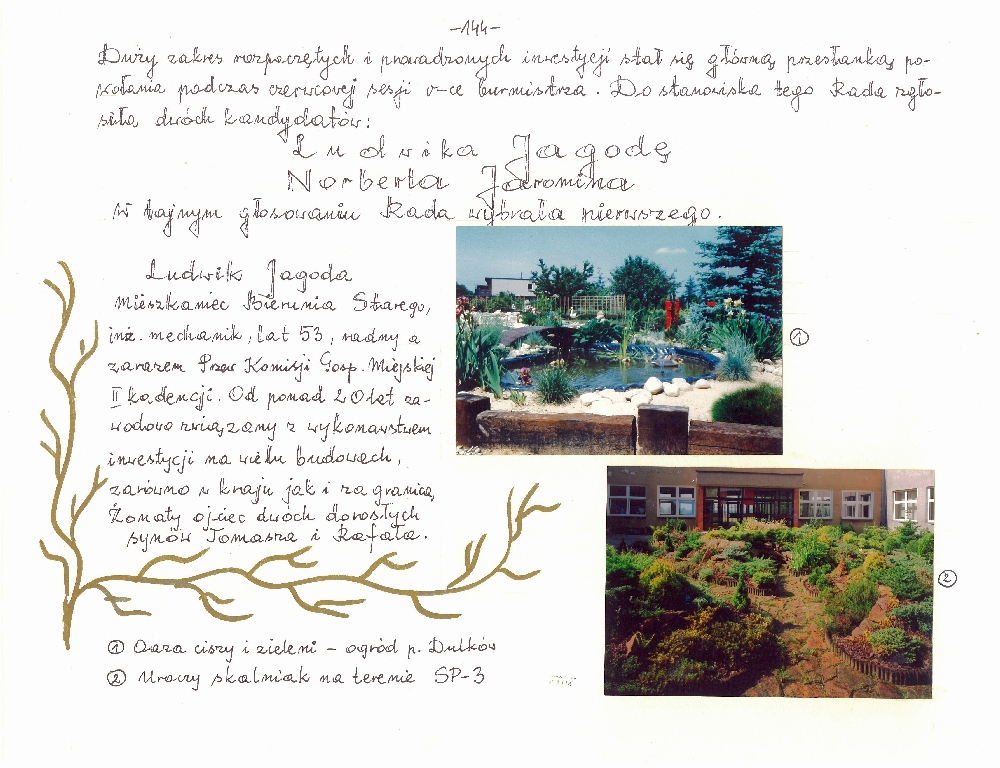 -144-
Duży zakres rozpoczętych i prowadzonych inwestycji stał się główną przesłanką po-
wołania podczas czerwcowej sesji v-ce burmistrza. Do stanowiska tego Rada zgło-
siła dwóch kandydatów:
Ludwika Jagodę
Norberta Jaromina
W tajnym głosowaniu Rada wybrała pierwszego.
Ludwik Jagoda
Mieszkaniec Bierunia Starego,
inż. mechanik, lat 53, radny a
zarazem Przew Komisji Gosp. Miejskiej
II kadencji. Od ponad 20 lat za-
wodowo związany z wykonawstwem
inwestycji na wielu budowach,
zarówno w kraju jak i za granicą,
Żonaty ojciec dwóch dorosłych
synów Tomasza i Rafała.
①
②
① Oaza ciszy i zieleni - ogród p. Dulków
② Uroczy skalniak na terenie SP-3